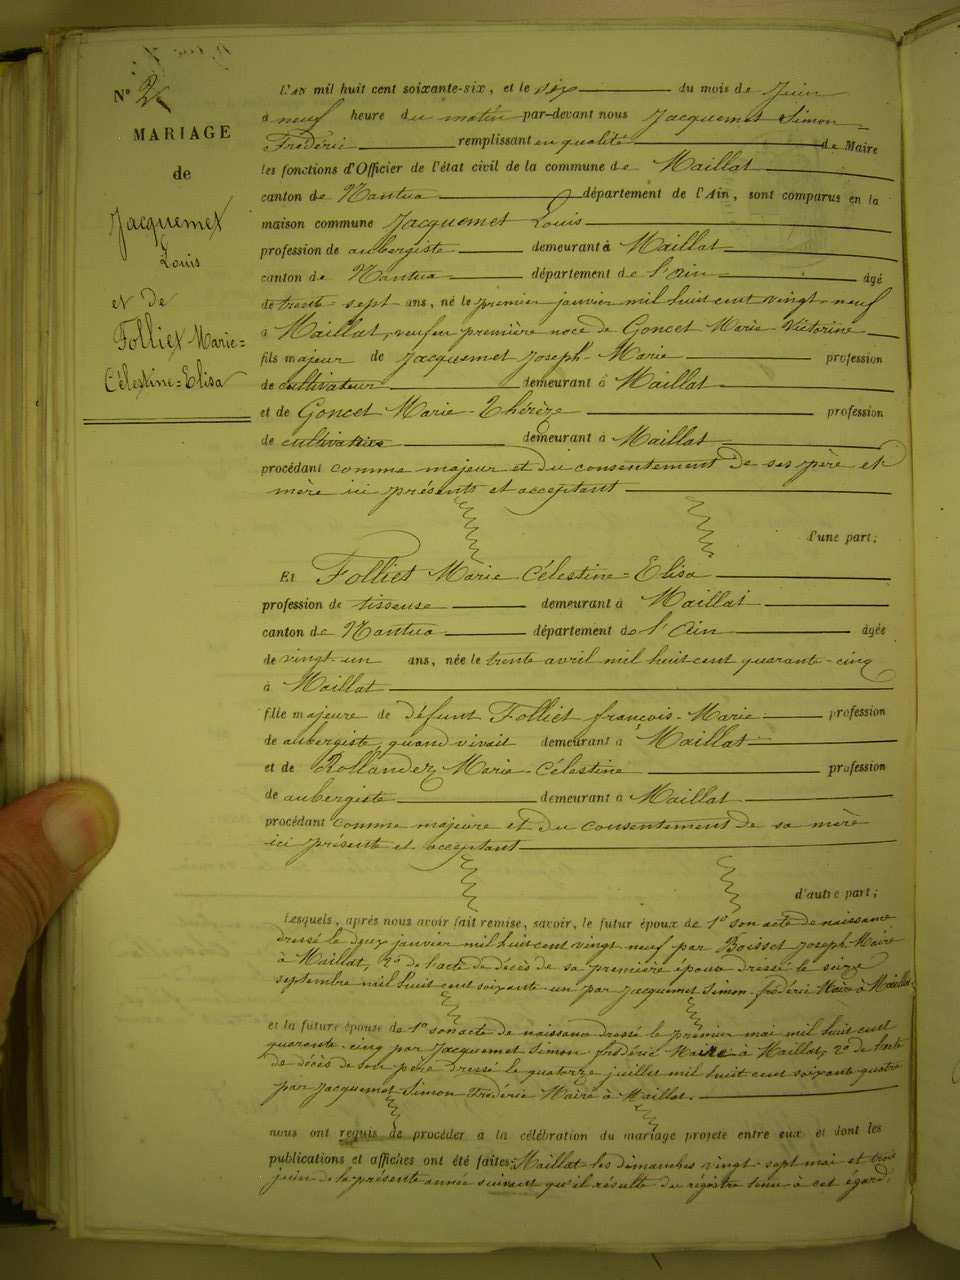 N° 2
MARIAGE
de
Jacquemet
Louis
et de
Folliet Marie=
Célestine=Elisa
L'AN mil huit cent soixante-six, et le six du mois de Juin
à neuf heure du matin par-devant nous Jacquemet Simon=
Frédéric remplissant en qualité de Maire
les fonctions d'Officier de l'état civil de la commune de Maillat
canton de Nantua département de l'Ain, sont comparus en la
maison commune Jacquemet Louis
profession de aubergiste demeurant à Maillat
canton de Nantua département de l'Ain âgé
de trente-sept ans, né le premier janvier mil huit cent vingt-neuf
à Maillat, veuf en première noce de Goncet Marie Victorine
fils majeur de Jacquemet Joseph-Marie profession
de cultivateur demeurant à Maillat
et de Goncet Marie-Thérèze profession
de cultivatrice demeurant à Maillat
procédant comme majeur et du consentement de ses père et
mère ici présents et acceptant
d'une part;
Et Folliet Marie Célestine=Elisa
profession de tisseuse demeurant à Maillat
canton de Nantua département de l'Ain âgée
de vingt-un ans, née le trente avril mil huit cent quarante-cinq
à Maillat
fille majeure de défunt Folliet françois-Marie profession
de aubergiste, quand vivait demeurant à Maillat
et de Rollandez Marie-Célestine profession
de aubergiste demeurant à Maillat
procédant comme majeure et du consentement de sa mère
ici présente et acceptant
d'autre part;
Lesquels, après nous avoir fait remise, savoir, le futur époux de 1° son acte de naissance
dressé le deux janvier mil huit cent vingt-neuf par Boisset Joseph-Maire
à Maillat, 2° de l'acte de décès de sa première épouse dressé le seize
septembre mil huit cent soixante-un par Jacquemet Simon-frédéric Maire à Maillat.
et la future épouse de 1° son acte de naissance dressé le premier mai mil huit cent
quarante-cinq par Jacquemet Simon-frédéric Maire à Maillat, 2° de l'acte
de décès de son père dressé le quatorze juillet mil huit cent soixante-quatre
par Jacquemet Simon-Frédéric Maire à Maillat.
nous ont requis de procéder à la célébration du mariage projeté entre eux et dont les
publications et affiches ont été faites: Maillat les dimanches vingt-sept mai et trois
juin de la présente année suivant qu'il résulte du registre tenu à cet égard.